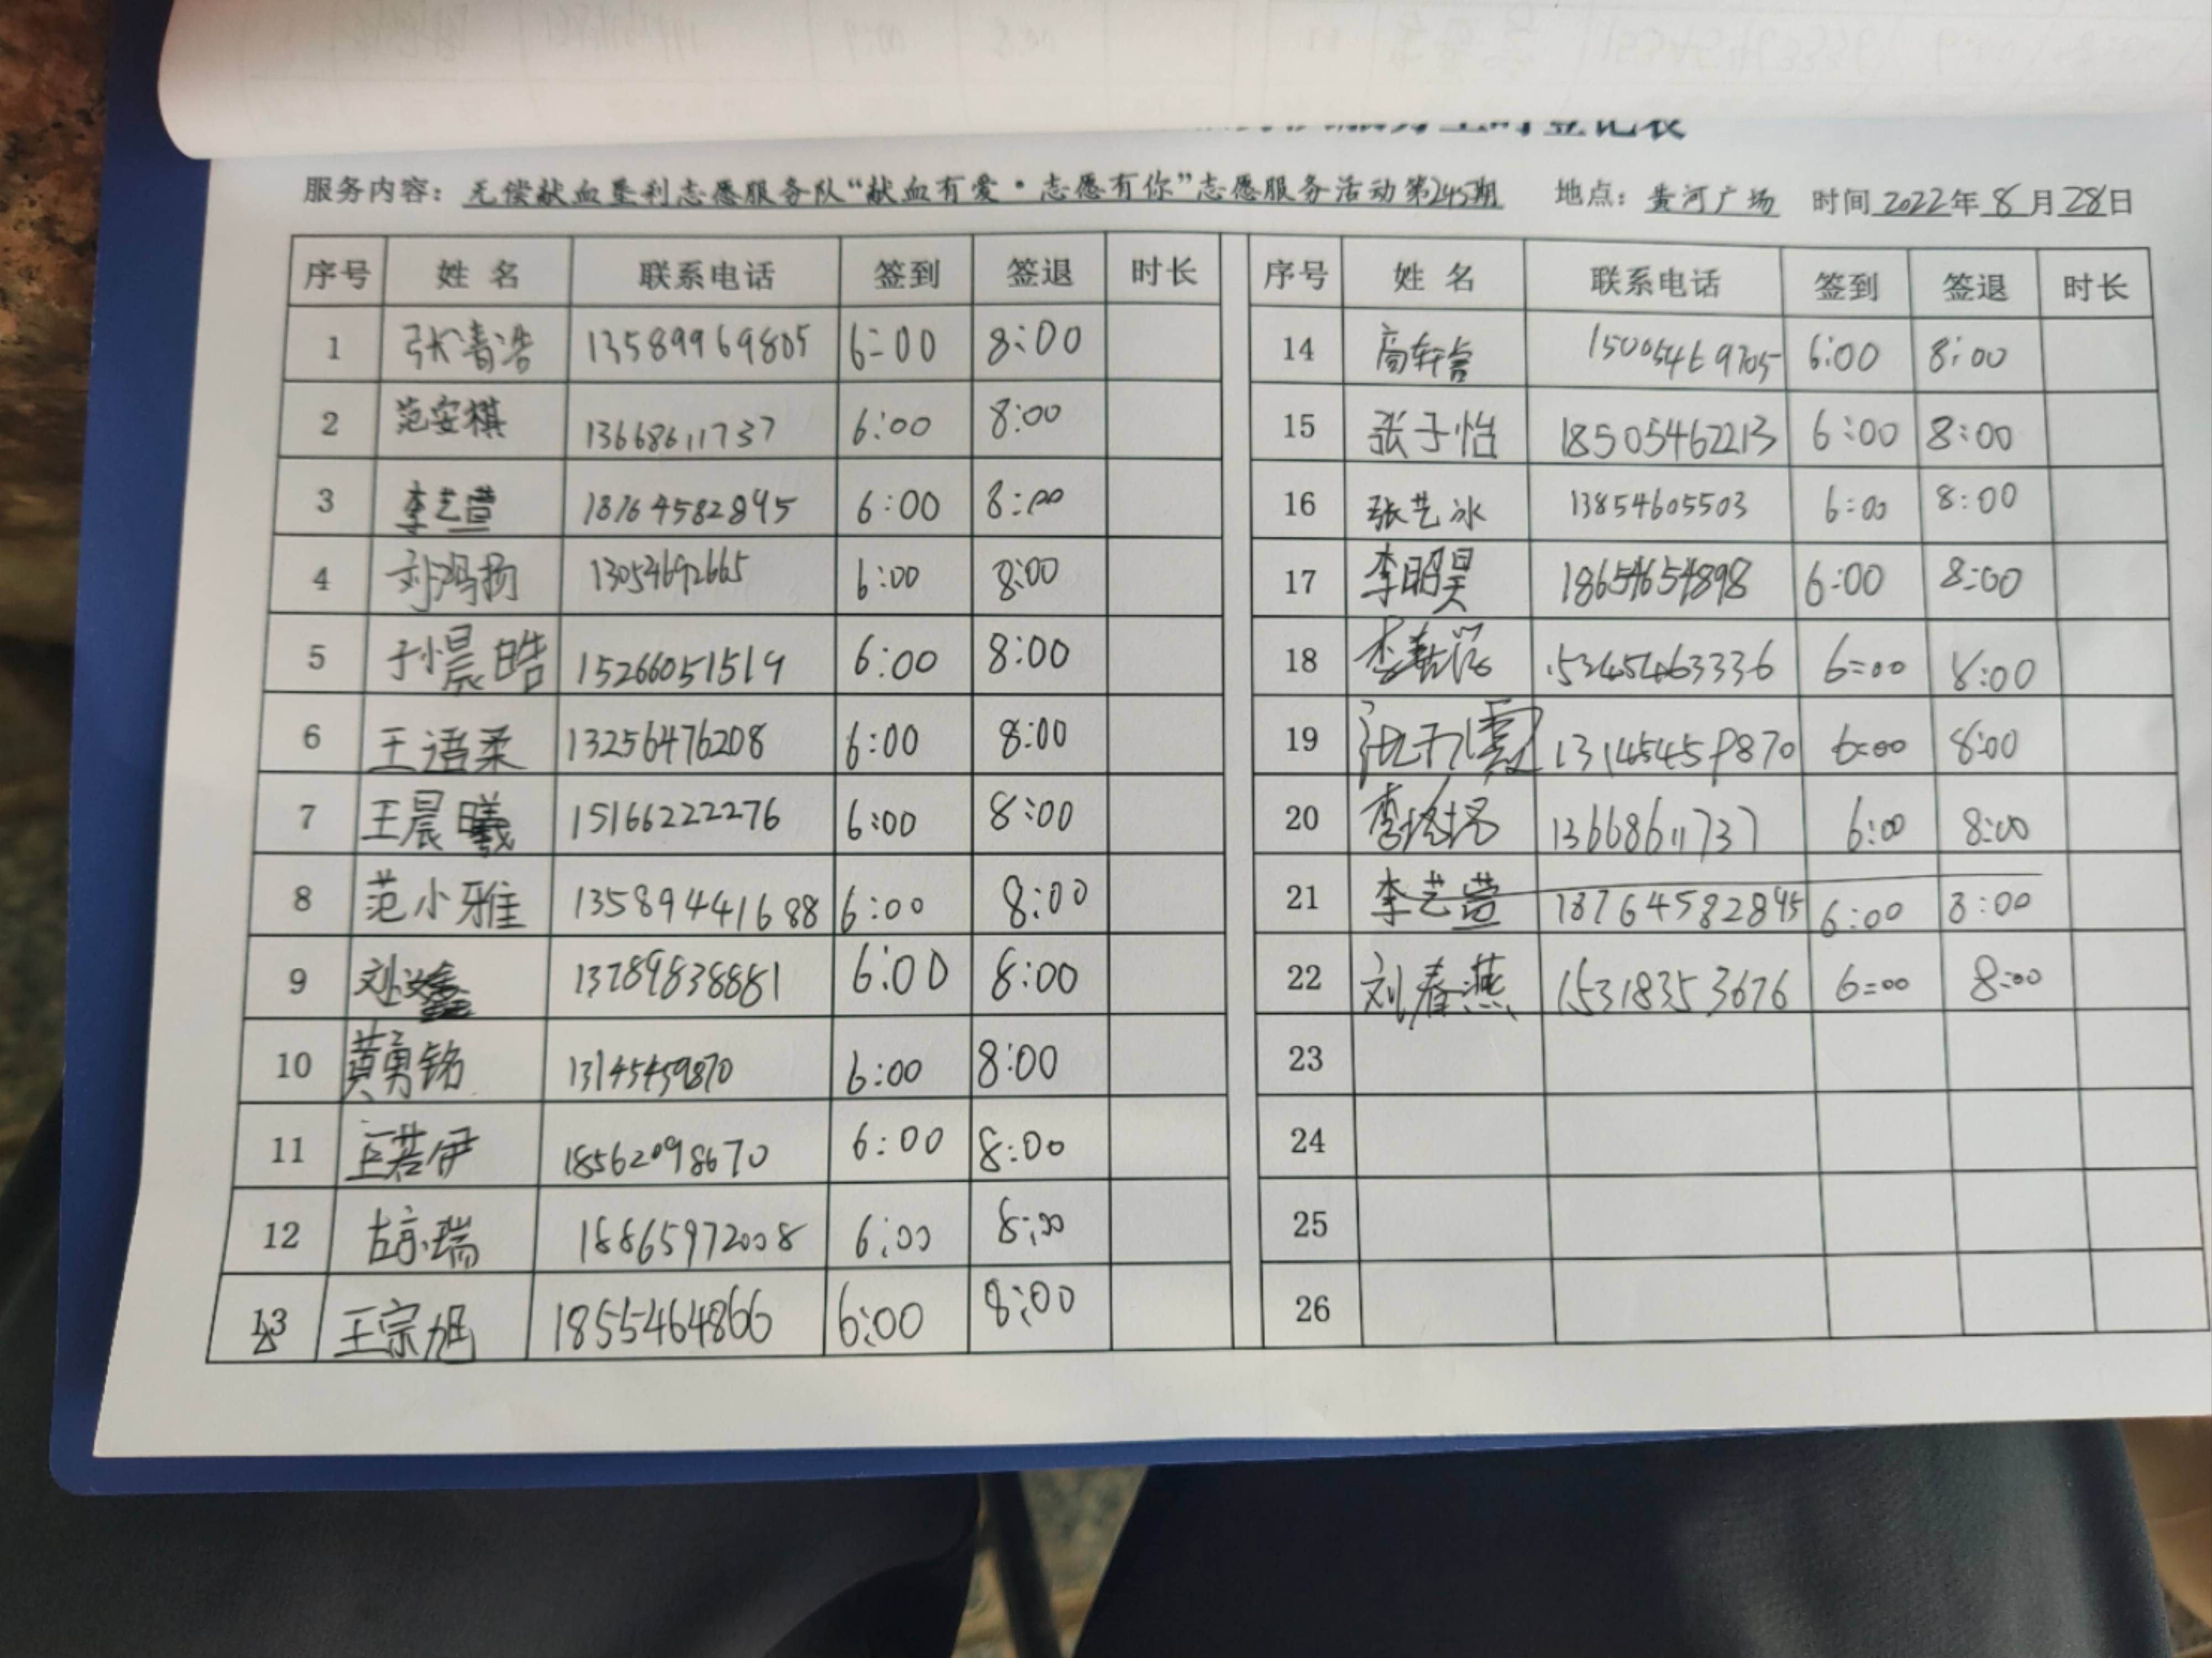 登记表
服务内容：无偿献血垦利志愿服务队“献血有爱·志愿有你”志愿服务活动第245期 地点：黄河广场 时间2022年8月28日
序号 姓名 联系电话 签到 签退 时长 序号 姓名 联系电话 签到 签退 时长
1 张清浩 13589969805 6:00 8:00 14 高轩言 15005469705 6:00 8:00
2 范安棋 13668611737 6:00 8:00 15 张子怡 18505462213 6:00 8:00
3 李艺萱 18764582845 6:00 8:00 16 张艺冰 13854605503 6:00 8:00
4 刘鸿扬 13054692665 6:00 8:00 17 李昭昊 18654654898 6:00 8:00
5 于小晨皓 15266051519 6:00 8:00 18 6:00 8:00
6 王语柔 13256476208 6:00 8:00 19 13145459870 6:00 8:00
7 王晨曦 15166222276 6:00 8:00 20 13668611737 6:00 8:00
8 范小雅 13589441688 6:00 8:00 21 李艺萱 18764582845 6:00 8:00
9 刘 13789838881 6:00 8:00 22 刘春燕 15318353676 6:00 8:00
10 黄勇铭 13145459870 6:00 8:00 23
11 王若伊 18562098670 6:00 8:00 24
12 古京瑞 18865972008 6:00 8:00 25
13 王宗旭 1855464866 6:00 8:00 26